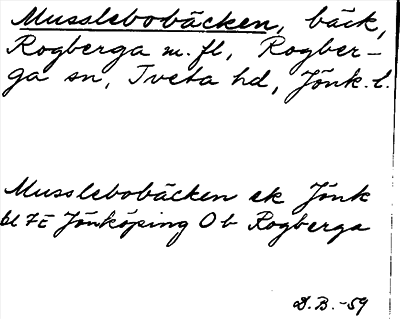 Musslebobäcken, bäck,
Rogberga m. fl, Rogber-
ga sn, Tveta hd, Jönk. l.
Musslebobäcken ek Jönk
bl 7E Jönköping Ob Rogberga
D.B.-59